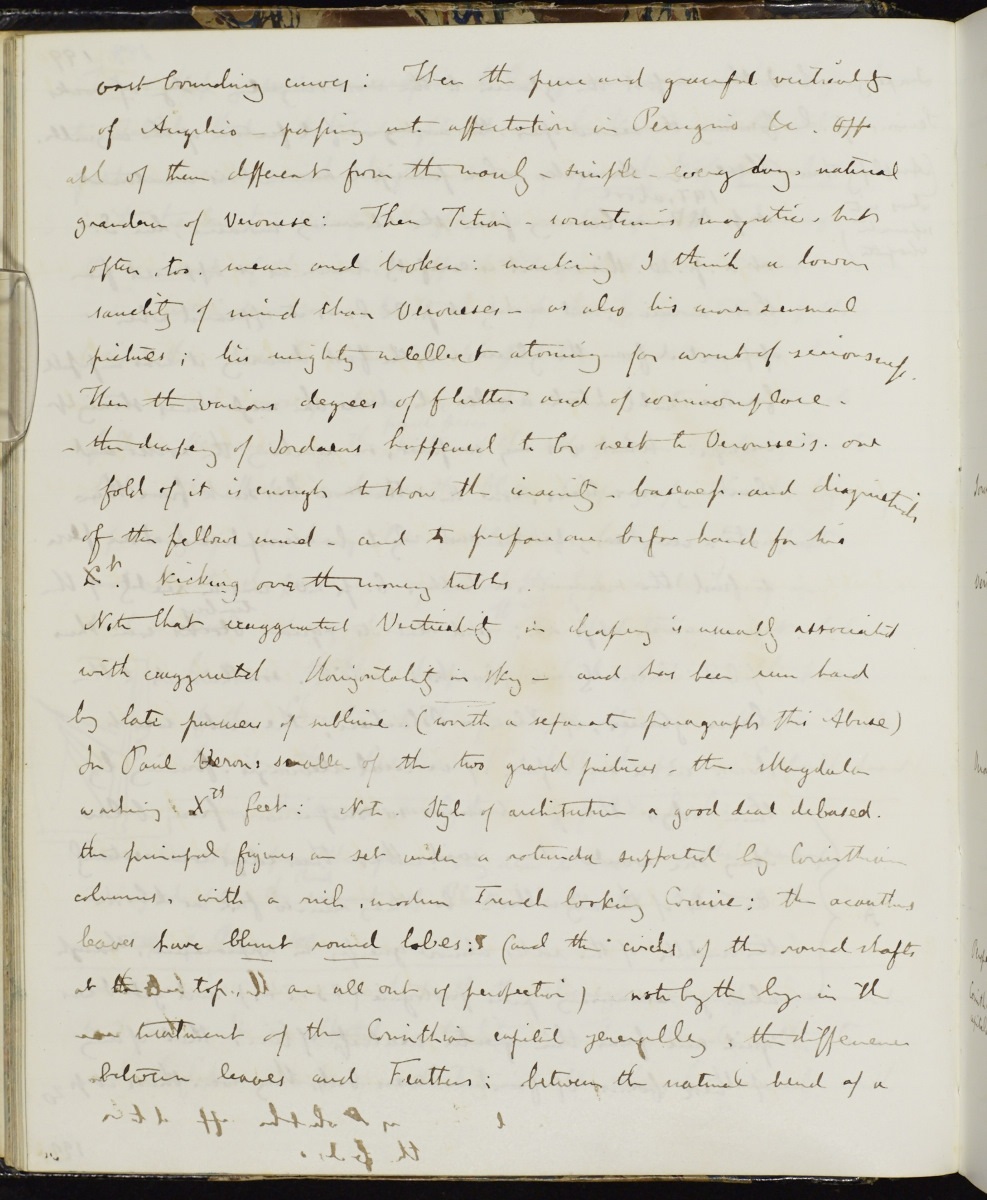 vast bounding curves: Then the pure and graceful verticality
of Angelico - passing into affectation in Perugino &c. opp
all of them different from the manly - simple - every day, natural
grandeur of Veronese: Then Titian - sometimes majestic, but
often, too, mean and broken: marking I think a lower
sanctity of mind than Veroneses - as also his more sensual
pictures; his mighty intellect atoning for want of seriousness.
Then the various degrees of flutter and of commonplace -
- the drapery of Jordaens happened to be next to Veronese's. one
fold of it is enough to show the inanity - baseness - and
of the fellows mind - and to prepare one before hand for his
Xst. kicking over the money tables.
Note that exaggerated Verticality in drapery is usually associated
with exaggerated Horizontality in sky - and has been run hard
by late pursuers of sublime. (worth a separate paragraph this Abuse)
In Paul Veron: smaller of the two grand pictures - the Magdalen
washing Xsts feet: Note. Style of architecture a good deal debased.
the principal figures are set under a rotunda supported by Corinthian
columns, with a rich, modern French looking Cornice: the acanthus
leaves have blunt round lobes: (and the circles of the round shafts
at the top, are all out of perspective) note by the bye in the
treatment of the Corinthian capital generally, the difference
between leaves and Feathers; between the natural bend of a